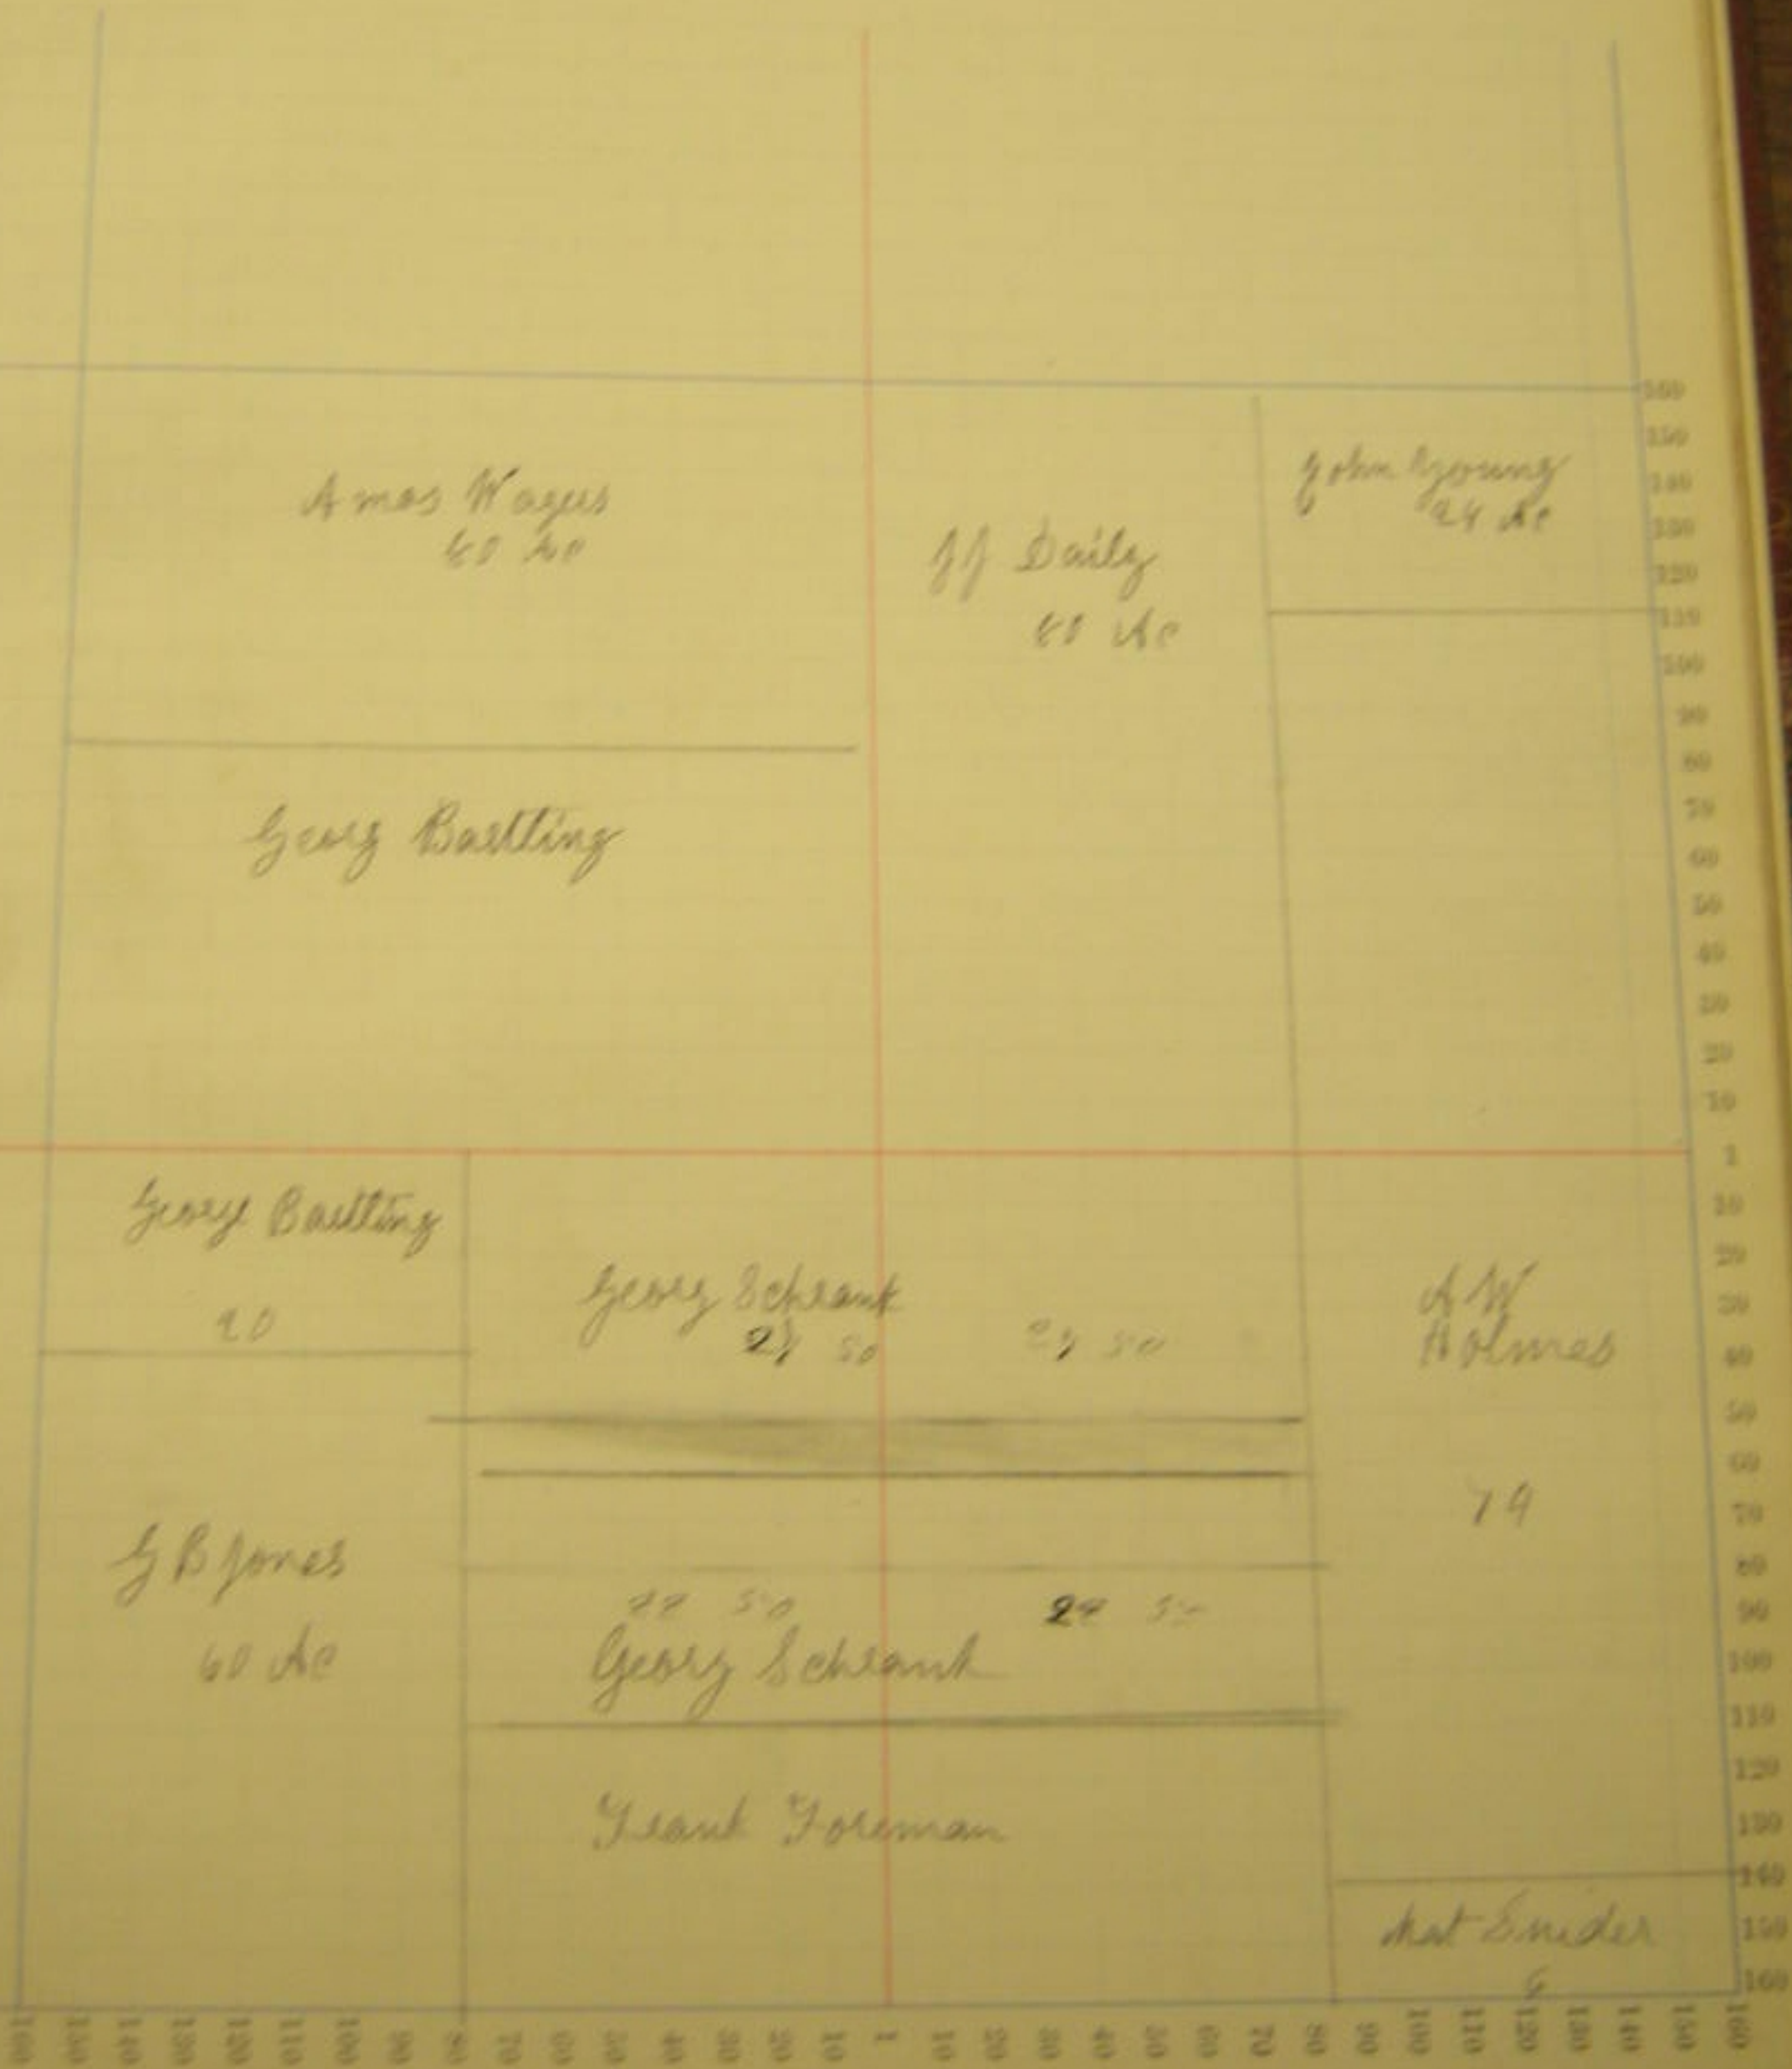 Amos Wages
80 Ac
JJ Daily
80 Ac
John Young
24 Ac
Georg Bartting
George Bartting
20
Georg Schrank
50
50
A W
Holmes
74
G B Jones
60 Ac
50
Georg Schrank
Frank Foreman
Mat Snider
6
160
150
140
130
120
110
100
90
80
70
60
50
40
30
20
10
1
10
20
30
40
50
60
70
80
90
100
110
120
130
140
150
160
160 150 140 130 120 110 100 90 80 70 60 50 40 30 20 10 1 10 20 30 40 50 60 70 80 90 100 110 120 130 140 150 160